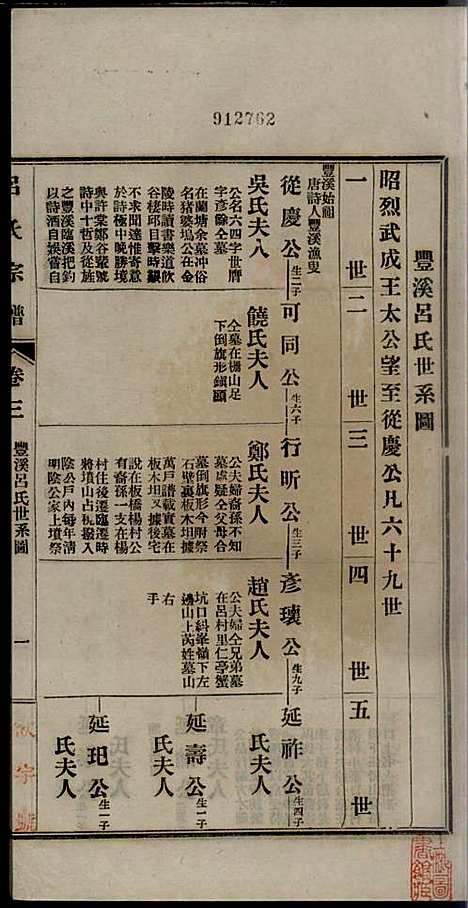 912762
豐溪呂氏世系圖
昭烈武成王太公望至從慶公凡六十九世
一世
二世
三世
四世
五世
豐溪始祖
唐詩人豐溪漁叟
從慶公
生二子
可同公
生六子
行昕公
生三子
彥瓌公
生九子
延祚公
生四子
吳氏夫人
公名六四字世膺
字彥餘仝墓
在蘭塘余墓冲俗
名猪婆塢公在金
陵時讀書樂道飲
谷棲邱目擊時艱
不求聞達惟寄興
於詩極中晚勝境
與許棠鄭谷輩號
詩中十哲及從族
之豐溪臨溪把釣
以詩酒自娛嘗自
饒氏夫人
仝墓在柵山足
下倒旗形鎮顧
鄭氏夫人
公夫婦裔孫不知
墓處疑仝父母合
墓倒旗形今附祭
石壁裏板木坦據
萬戶譜載實墓在
板木坦又據後宅
說在板橋楊村公
有裔孫一支在楊
村住後遷臨遷時
將墳山占板撥入
陰公戶內每年清
明陰公家上墳祭
趙氏夫人
公夫婦仝兄弟墓
在呂村里仁亭蟹
坑口糾峯嶺下左
邊山上芮姓墓山
右
手
氏夫人
延壽公
生一子
氏夫人
延玘公
生一子
氏夫人
呂氏宗譜
卷三
豐溪呂氏世系圖
一